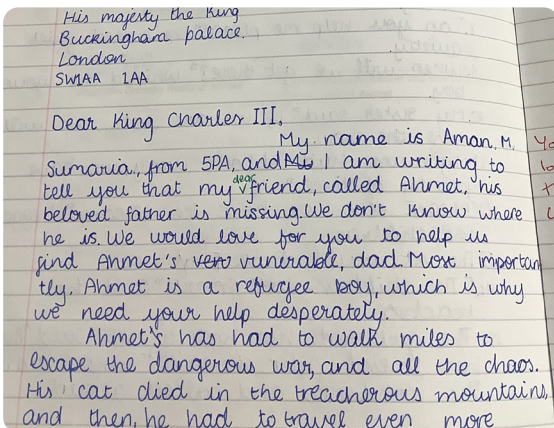 His majesty the King
Buckingham palace.
London
SW1AA 1AA
Dear King Charles III,
My name is Aman. M.
Sumaria, from 5PA, and My I am writing to
tell you that my dear friend, called Ahmet, his
beloved father is missing. We don't know where
he is. We would love for you to help us
find Ahmet's very vunerable, dad. Most importan
tly. Ahmet is a refugee boy, which is why
we need your help desperately.
Ahmet's has had to walk miles to
escape the dangerous war, and all the chaos.
His cat died in the treacherous mountains,
and then, he had to travel even more